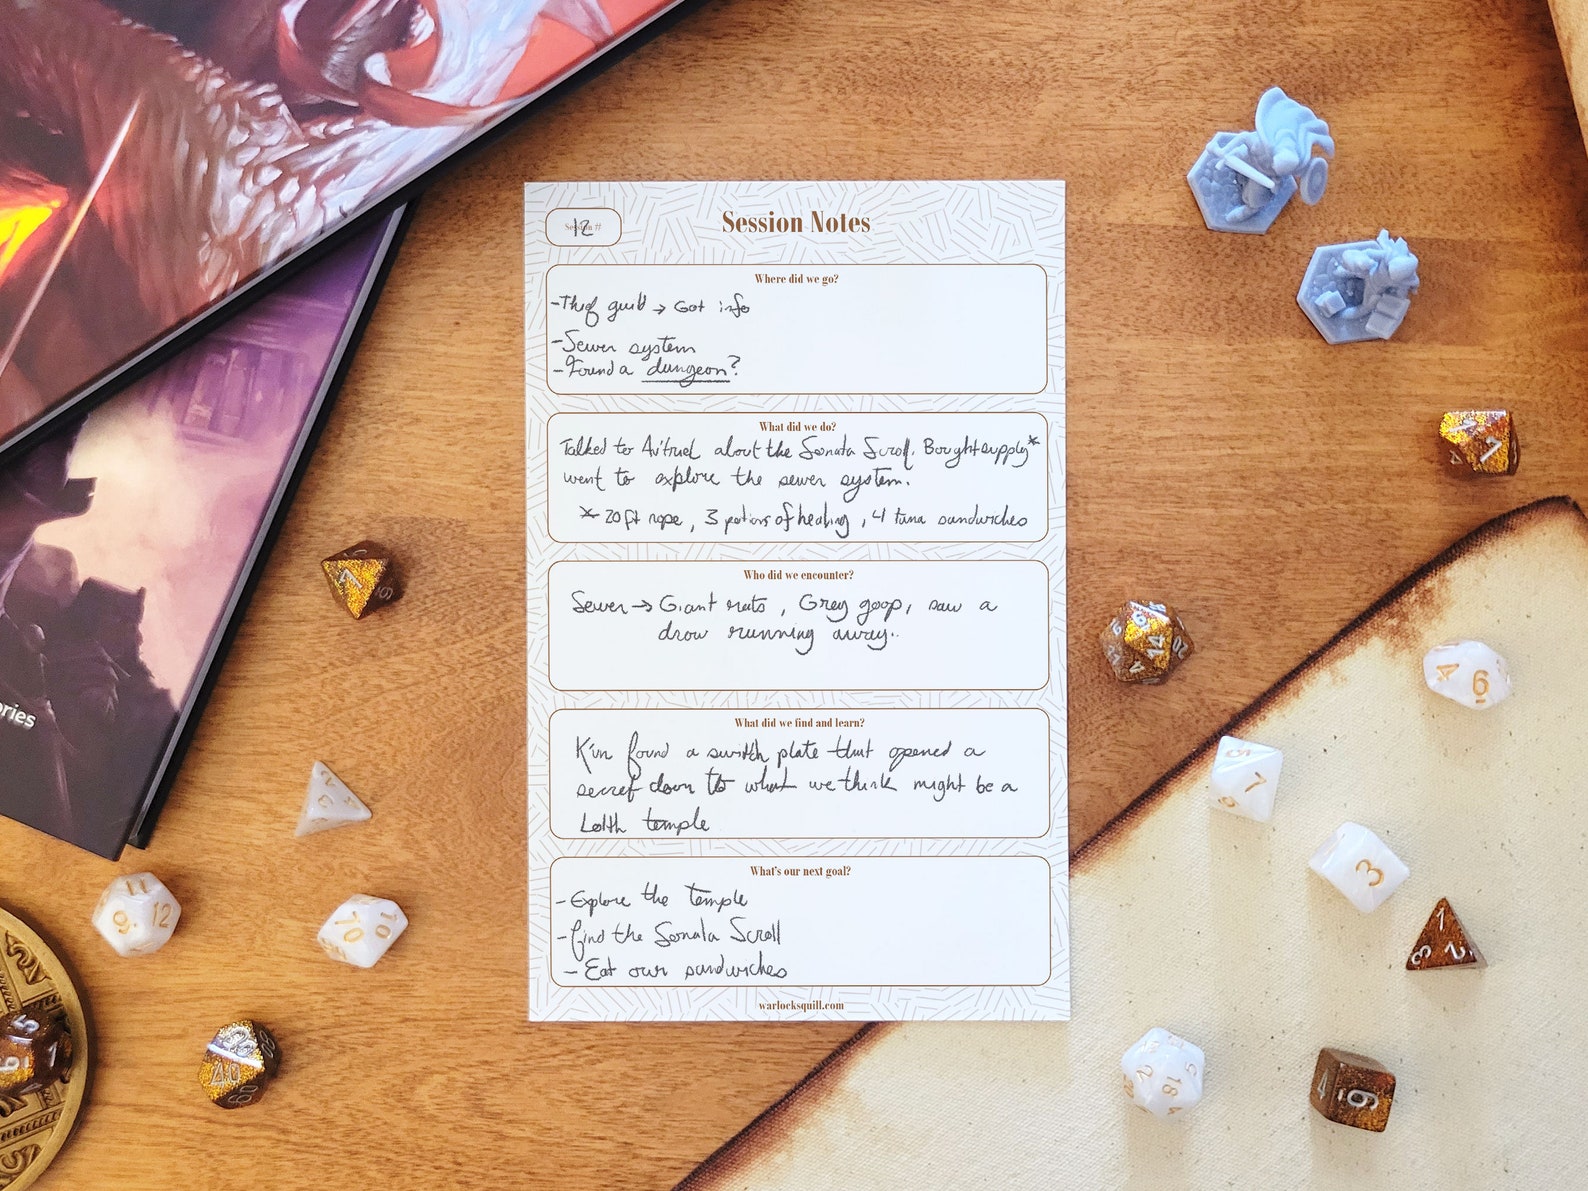 Session #
12
Session Notes
Where did we go?
- Thief guild → Got info
- Sewer system
- Found a dungeon?
What did we do?
Talked to Av'truel about the Sonata Scroll. Bought supply*
went to explore the sewer system.
* 20 ft rope, 3 potions of healing, 4 tuna sandwiches
Who did we encounter?
Sewer → Giant rats, Grey goop, saw a
drow running away..
What did we find and learn?
K'vn found a switch plate that opened a
secret down to what we think might be a
Lolth temple
What's our next goal?
- Explore the temple
- find the Sonata Scroll
- Eat our sandwiches
warlocksquill.com
ories